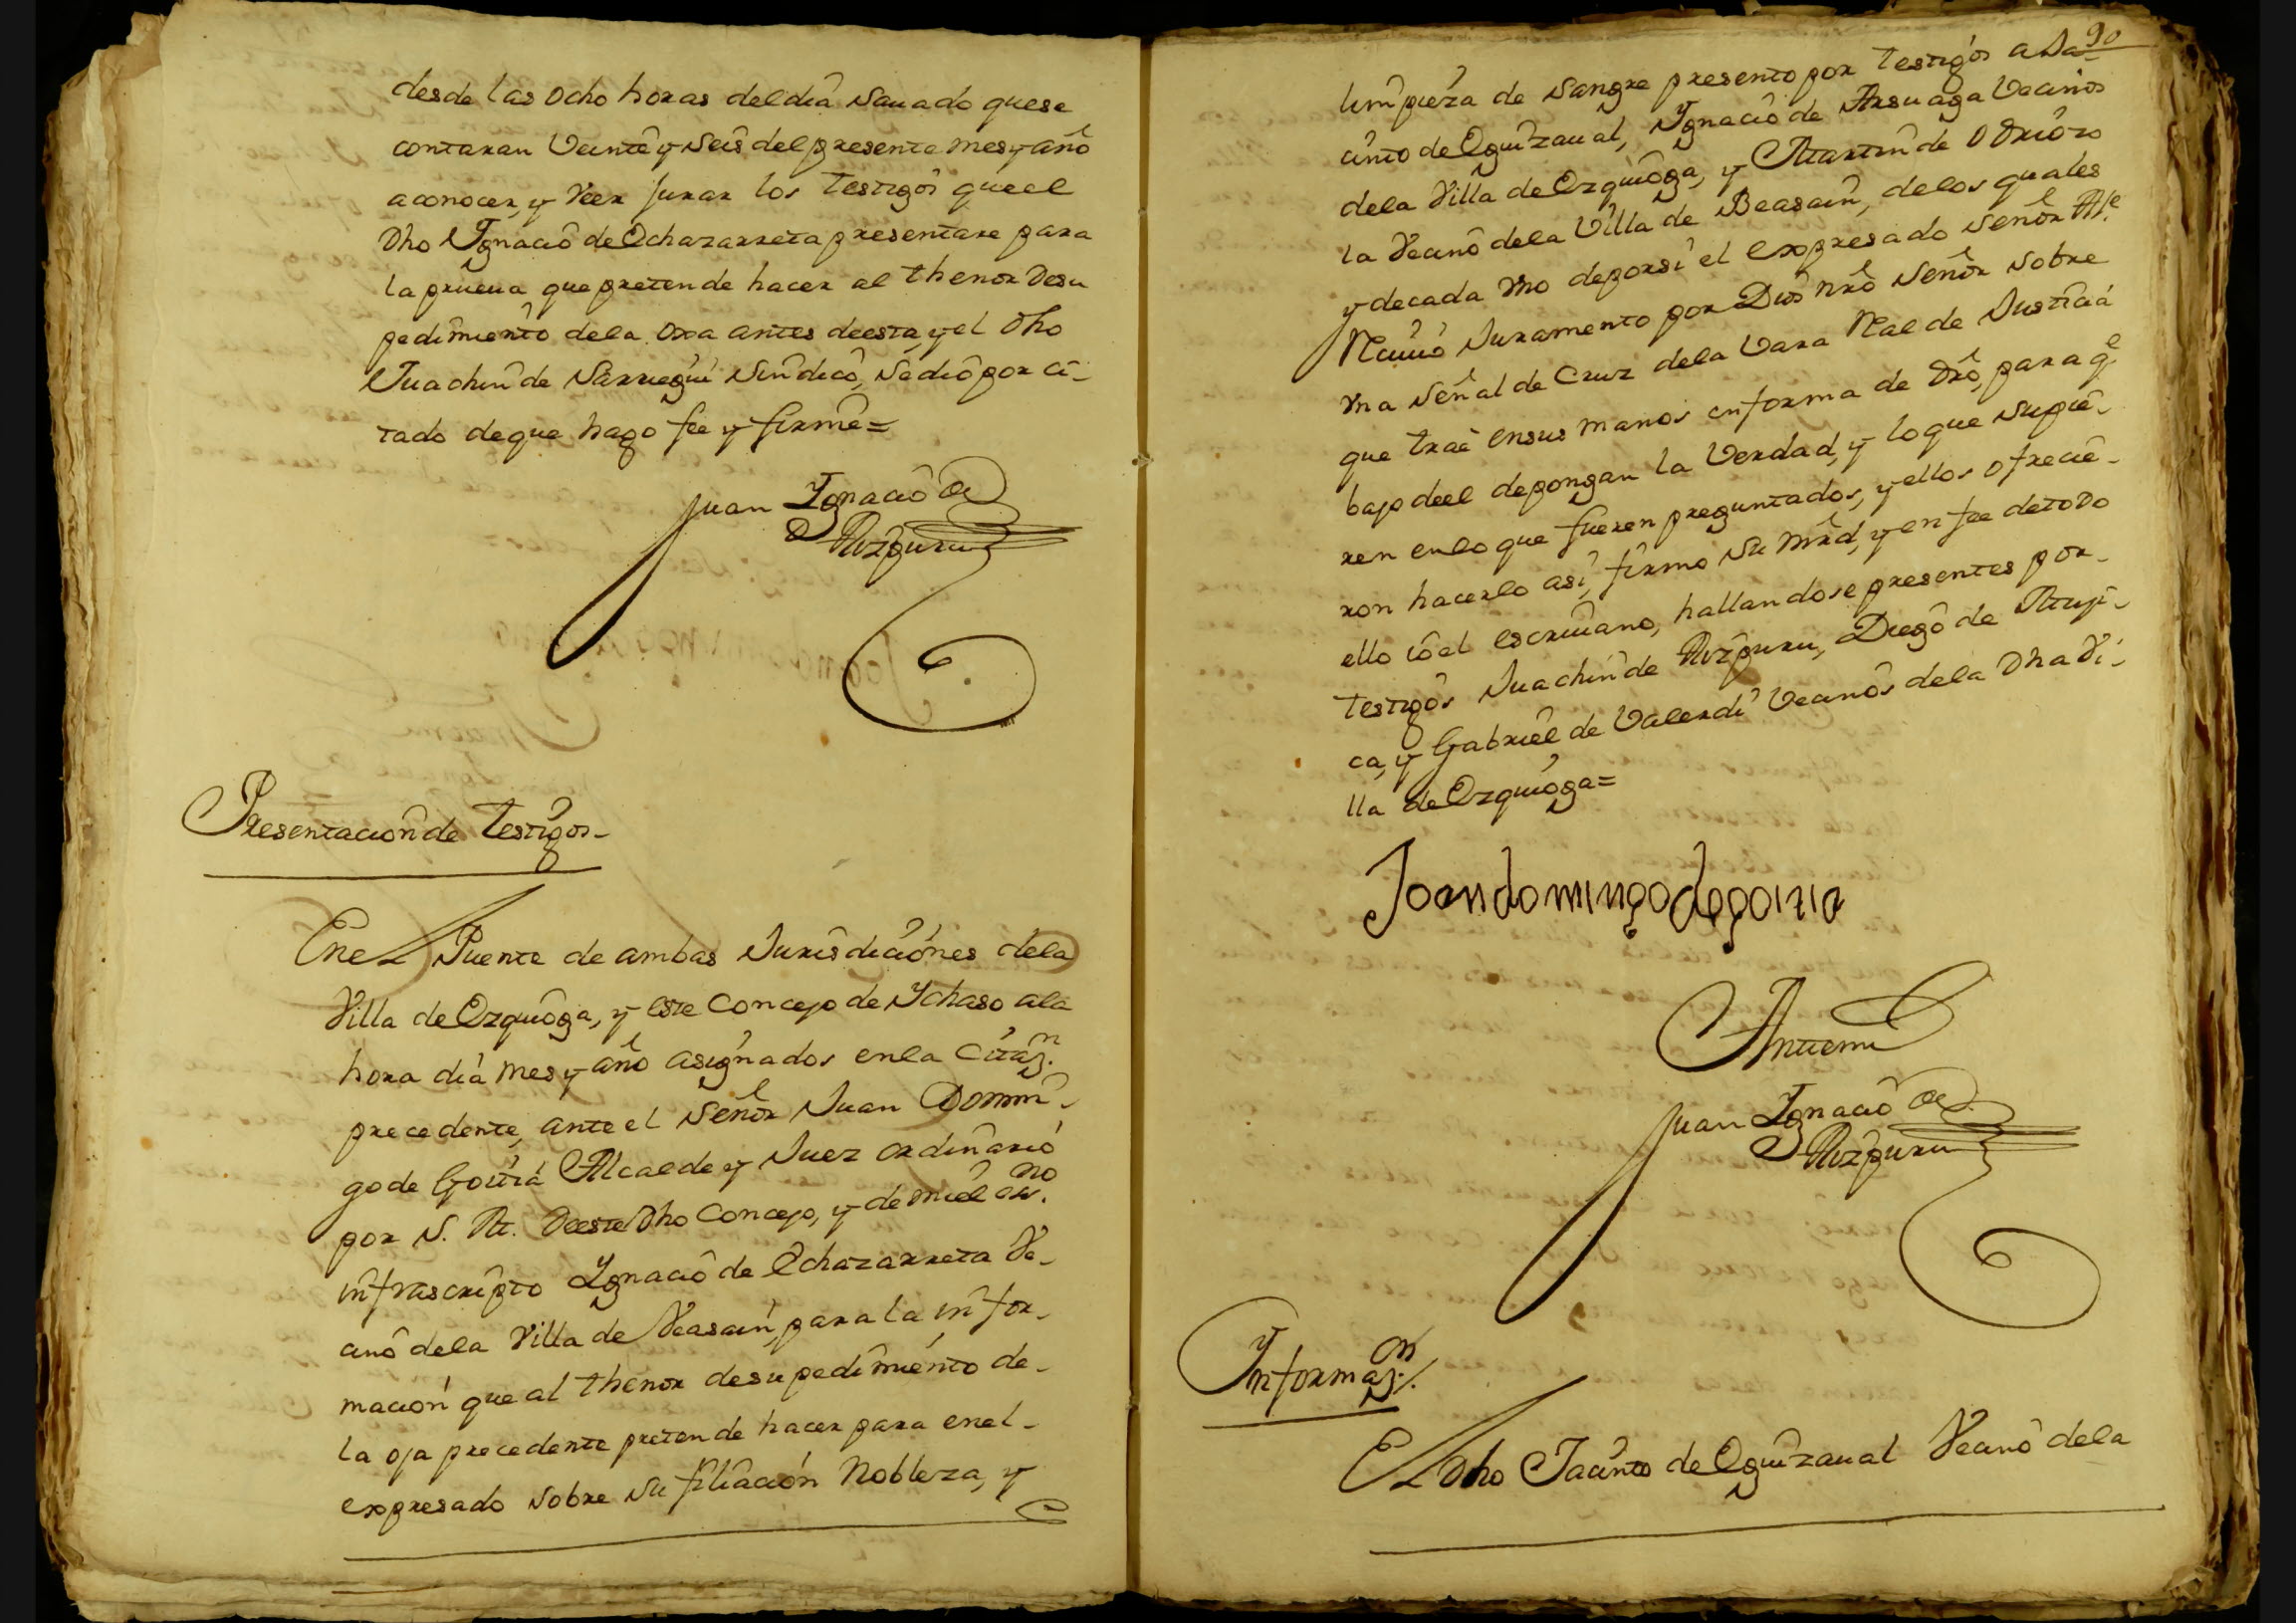 desde las ocho horas del dia Sauado que se
contaran Veinte y Seis del presente mes y año
a conocer, y Veer Jurar los testigos que el
dho Ygnacio de Echazarreta presentare para
la prueua que pretende hacer al thenor de su
pedimiento de la oxa antes de esta, y el dho
Juachin de Sarriegui Sindico, Se dio por ci-
tado de que hago fee y firme=
Juan Ygnacio de
Aizpuru
Presentacion de testigos-
En el Puente de ambas Jurisdiciones de la
Villa de Ezquioga, y este Concejo de Ychaso a la
hora dia mes y año asignados en la Citaz.n
precedente, ante el Señor Juan Domin-
go de Goitia Alcalde y Juez ordinario
por S. M. de este dho Concejo, y de mi el ess.no
infrascripto Ygnacio de Echazarreta Ve-
cino de la Villa de Veasain, para la infor-
macion que al thenor de su pedimiento de-
la oja precedente pretende hacer para en el-
expresado Sobre Su filiacion Nobleza, y
90
limpieza de Sangre presento por testigos a Ja-
cinto de Eguizaual, Ygnacio de Arsuaga Vecinos
de la Villa de Ezquioga, y Martin de Odriozo
la Vecino de la Villa de Beasain, de los quales
y de cada Vno de por si el expresado Señor Al.e
Reciuio Juramento por Dios nro Señor Sobre
Vna Señal de Cruz de la Vara Real de Justicia
que trae en sus manos en forma de dro, para q.e
bajo de el depongan la Verdad, y lo que Supie-
ren en lo que fueren preguntados, y ellos ofrecie-
ron hacerlo asi, firmo Su mrd, y en fee de todo
ello io el escriuano, hallandose presentes por-
testigos Juachin de Aizpuru, Diego de Muji-
ca, y Gabriel de Valerdi Vecinos de la dha Vi-
lla de Ezquioga=
Joan domingo de goizia
Ante mi
Juan Ygnacio de
Aizpuru
Ynformaz.on
El dho Jacinto de Eguizaual Vecino de la